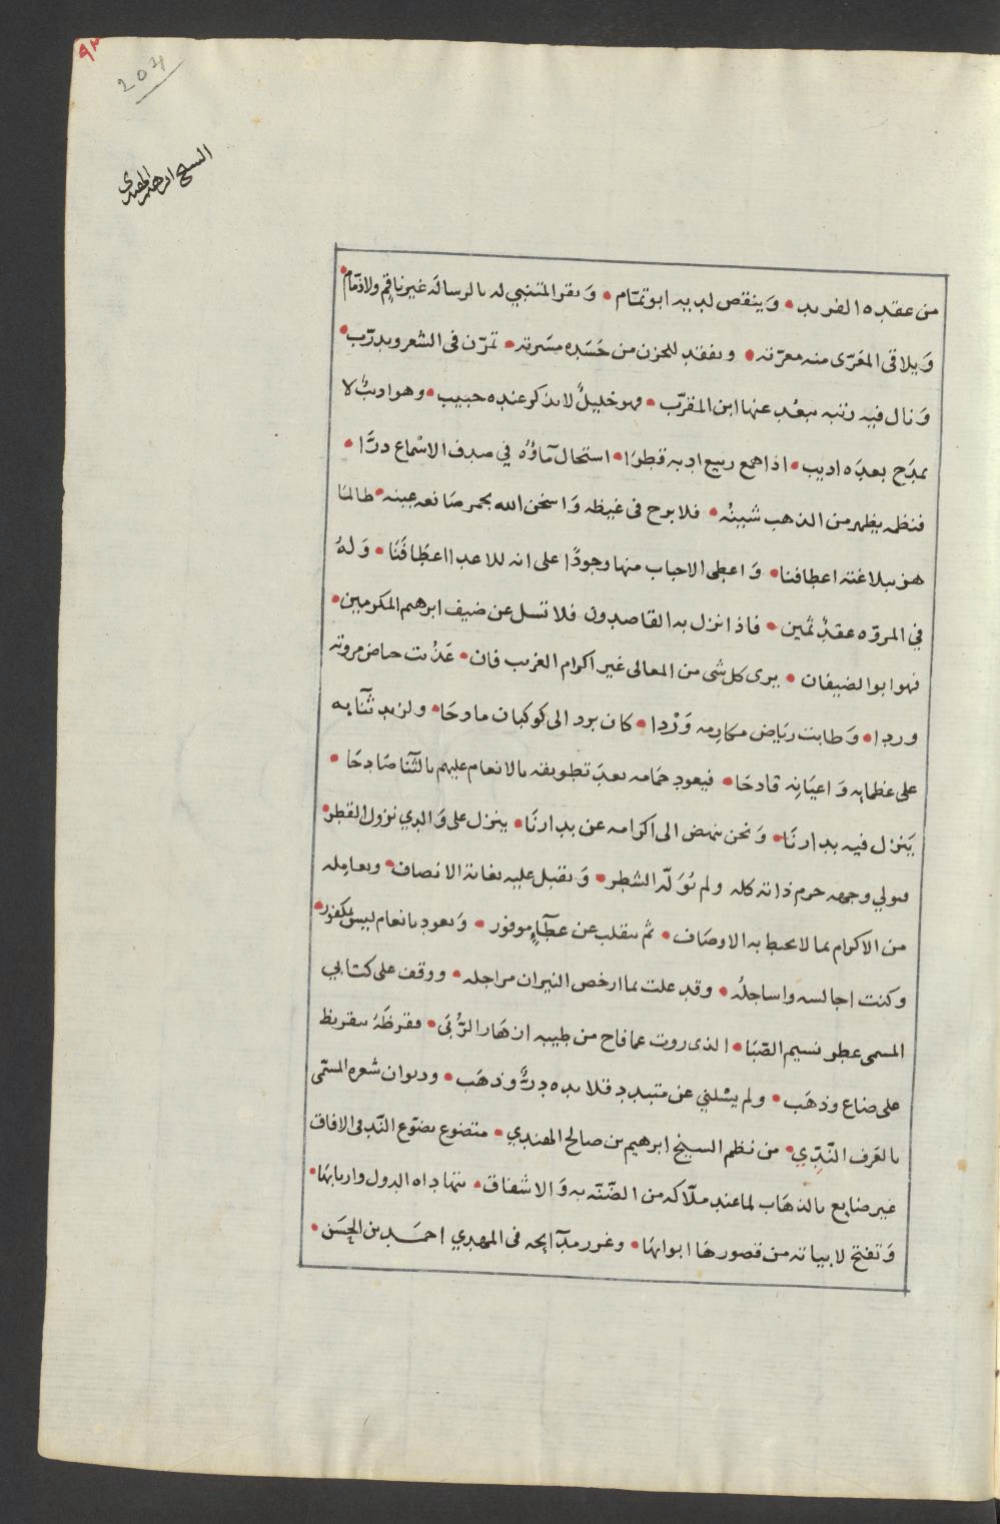 ٩٣
204
الشيخ ابراهيم الهندي
من عقده الفريد • وَينقص لديه ابو تمّام • وَيقر المتنبي له بالرسالَة غير ناقم ولا ذمّام •
وَيلاقي المعَرّى منه معرّته • ويفقد للحزن من حَسَده مسَرته • تمرّن في الشعر وبدرّب •
وَنال فيه رتبه يبعُد عنها ابن المقرّب • فهو خليلٌ لا يذكر عنده حبيب • وهو اديبٌ لا
يمدَح بعدَه اديب • اذا همع ربيع ادبه قطرًا • استحال مآؤُه في صدف الاسْماع درًّا •
فنظمه يظهر من الذهب شينهُ • فلا برح في غيظه وَاسخن الله بحمر صَانعه عينه • طالما
هز ببلاغته اعطافنا • وَاعطى الاحباب منها وجودًا على انه للاعدا اعطَافَنَا • وَلهُ
في المروّه عقدٌ ثمين • فاذا نزل به القاصدون فلا تسل عن ضيف ابرهيم المكرمين •
فهو ابو الضيفان • يرى كل شى من المعالى غير اكرام الغريب فان • عَذُبت حياض مروته
وردا • وَطابت ريَاض مكارمه وَرْدا • كان يرد الى كوكبان مادحَا • ولزند ثنآيه
على عظمايه وَاعيَانِه قادحَا • فيعود حمَامه بعدَ تطويقه بالانعام عليهم بالثنَا صَادحَا •
يَنزل فيه بدارنَا • وَنحن ننهض الى اكرامه عن بدارنَا • ينزل على وَالدي نزول القطر •
فيولي وجهه حرم ذاته كله ولم يُوَلّه الشطر • وَيقبل عليه بغاية الانصاف • ويعامله
من الاكرام بما لا يحيط به الاوصَاف • ثم ينقلب عن عطَآءٍ موفور • وَيعود بانعام ليس بمكفور •
وكنت اجالسه واساجلُه • وقد علت بما ارخص النيران مراجله • ووقف على كتابي
المسمى عطر نسيم الصّبَا • الذى روت عما فاح من طيبه ازهَار الرُّبَى • فقرظَهُ بتقريظ
على ضاع وذهَب • ولم يسْلني عن متبدد قلايده درٌّ وذهَب • وديوان شعره المسمّى
بالعَرف النّدّي • من نظم الشيخ ابرهيم بن صالح الهندي • متضوع تضوّع النّد في الافاق
غير ضايع بالذهَاب لما عند ملّاكه من الضّنّه به وَالاشفاق • تتهاداه الدول واربابهَا •
وَتفتح لابياته من قصورهَا ابوابهَا • وغرر مدَآيحه في المهدي احمَد بن الحسَن •